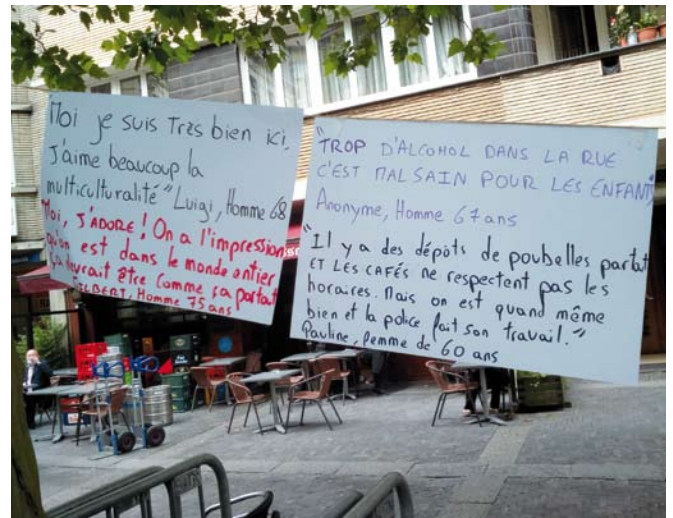 Moi je suis Très bien ici,
J'aime beaucoup la
multiculturalité" Luigi, Homme 68
Moi, J'ADORE! On a l'impression
qu'on est dans le monde entier
ça devrait être comme ça partout
Homme 75 ans
"TROP D'ALCOHOL DANS LA RUE
C'EST MALSAIN POUR LES ENFANTS"
Anonyme, Homme 67 ans
"Il y a des dépôts de poubelles partout
ET LES CAFÉS ne respectent pas les
horaires. Mais on est quand même
bien et la police fait son travail."
Pauline, femme de 60 ans